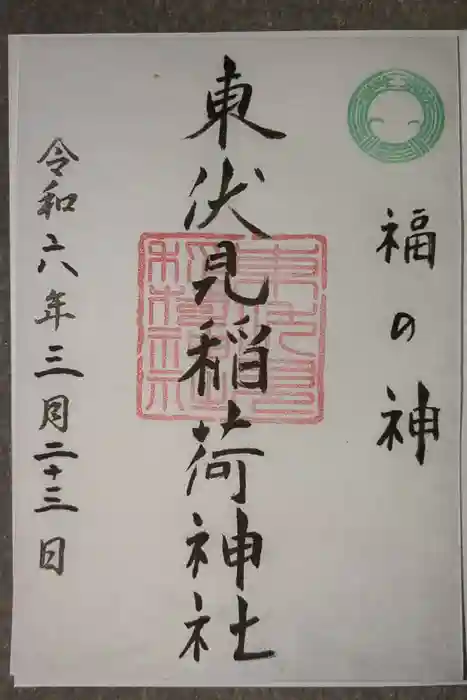 福の神
東伏見稲荷神社
令和六年三月二十三日